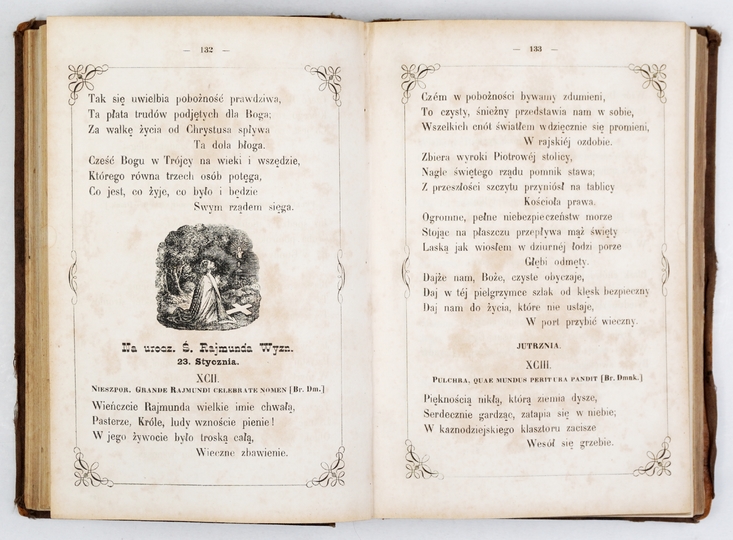 — 132 —
Tak się uwielbia pobożność prawdziwa,
Ta płata trudów podjętych dla Boga;
Za walkę życia od Chrystusa spływa
Ta dola błoga.
Cześć Bogu w Trójcy na wieki i wszędzie,
Którego równa trzech osób potęga,
Co jest, co żyje, co było i będzie
Swym rządem sięga.
Na urocz. Ś. Rajmunda Wyzn.
23. Stycznia.
XCII.
Nieszpor. Grande Rajmundi celebrate nomen [Br. Dm.]
Wieńczcie Rajmunda wielkie imie chwałą,
Pasterze, Króle, ludy wznoście pienie!
W jego żywocie było troską całą,
Wieczne zbawienie.
— 133 —
Czém w pobożności bywamy zdumieni,
To czysty, śnieżny przedstawia nam w sobie,
Wszelkich cnót światłem wdzięcznie się promieni,
W rajskiéj ozdobie.
Zbiera wyroki Piotrowéj stolicy,
Nagle świętego rządu pomnik stawa;
Z przeszłości szczytu przyniósł na tablicy
Kościoła prawa.
Ogromne, pełne niebezpieczeństw morze
Stojąc na płaszczu przepływa mąż święty
Laską jak wiosłem w dziurnéj łodzi porze
Głębi odmęty.
Dajże nam, Boże, czyste obyczaje,
Daj w téj pielgrzymce szlak od klęsk bezpieczny
Daj nam do życia, które nie ustaje,
W port przybić wieczny.
JUTRZNIA.
XCIII.
Pulchra, quae mundus peritura pandit [Br. Dmnk.]
Pięknością nikłą, którą ziemia dysze,
Serdecznie gardząc, zatapia się w niebie;
W kaznodziejskiego klasztoru zacisze
Wesół się grzebie.